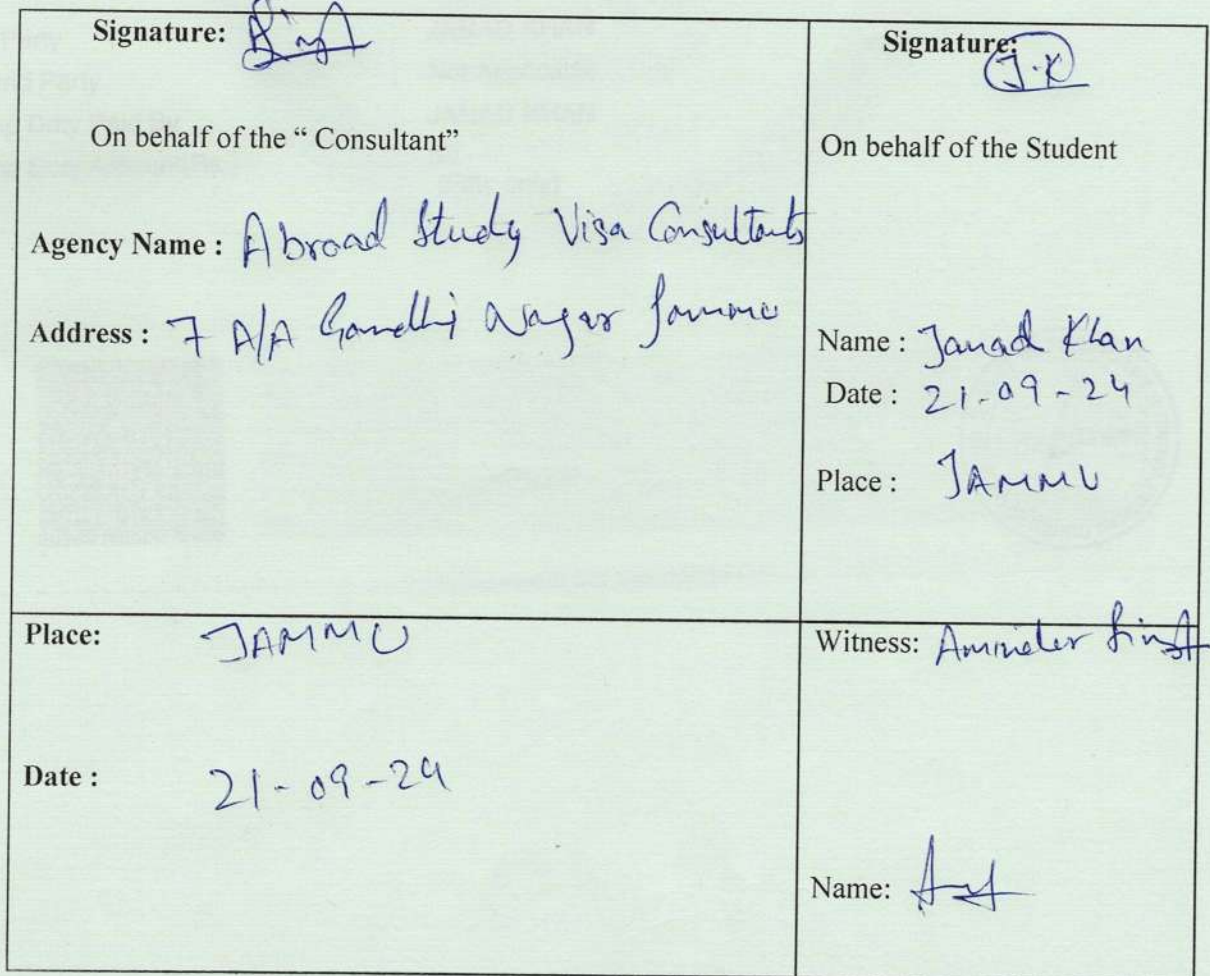 Signature:
On behalf of the “ Consultant”
Agency Name : Abroad Study Visa Consultants
Address : 7 A/A Gandhi Nagar Jammu
Signature: J.K
On behalf of the Student
Name : Janad Khan
Date : 21-09-24
Place : JAMMU
Place: JAMMU
Date : 21-09-24
Witness: Aminder Singh
Name: